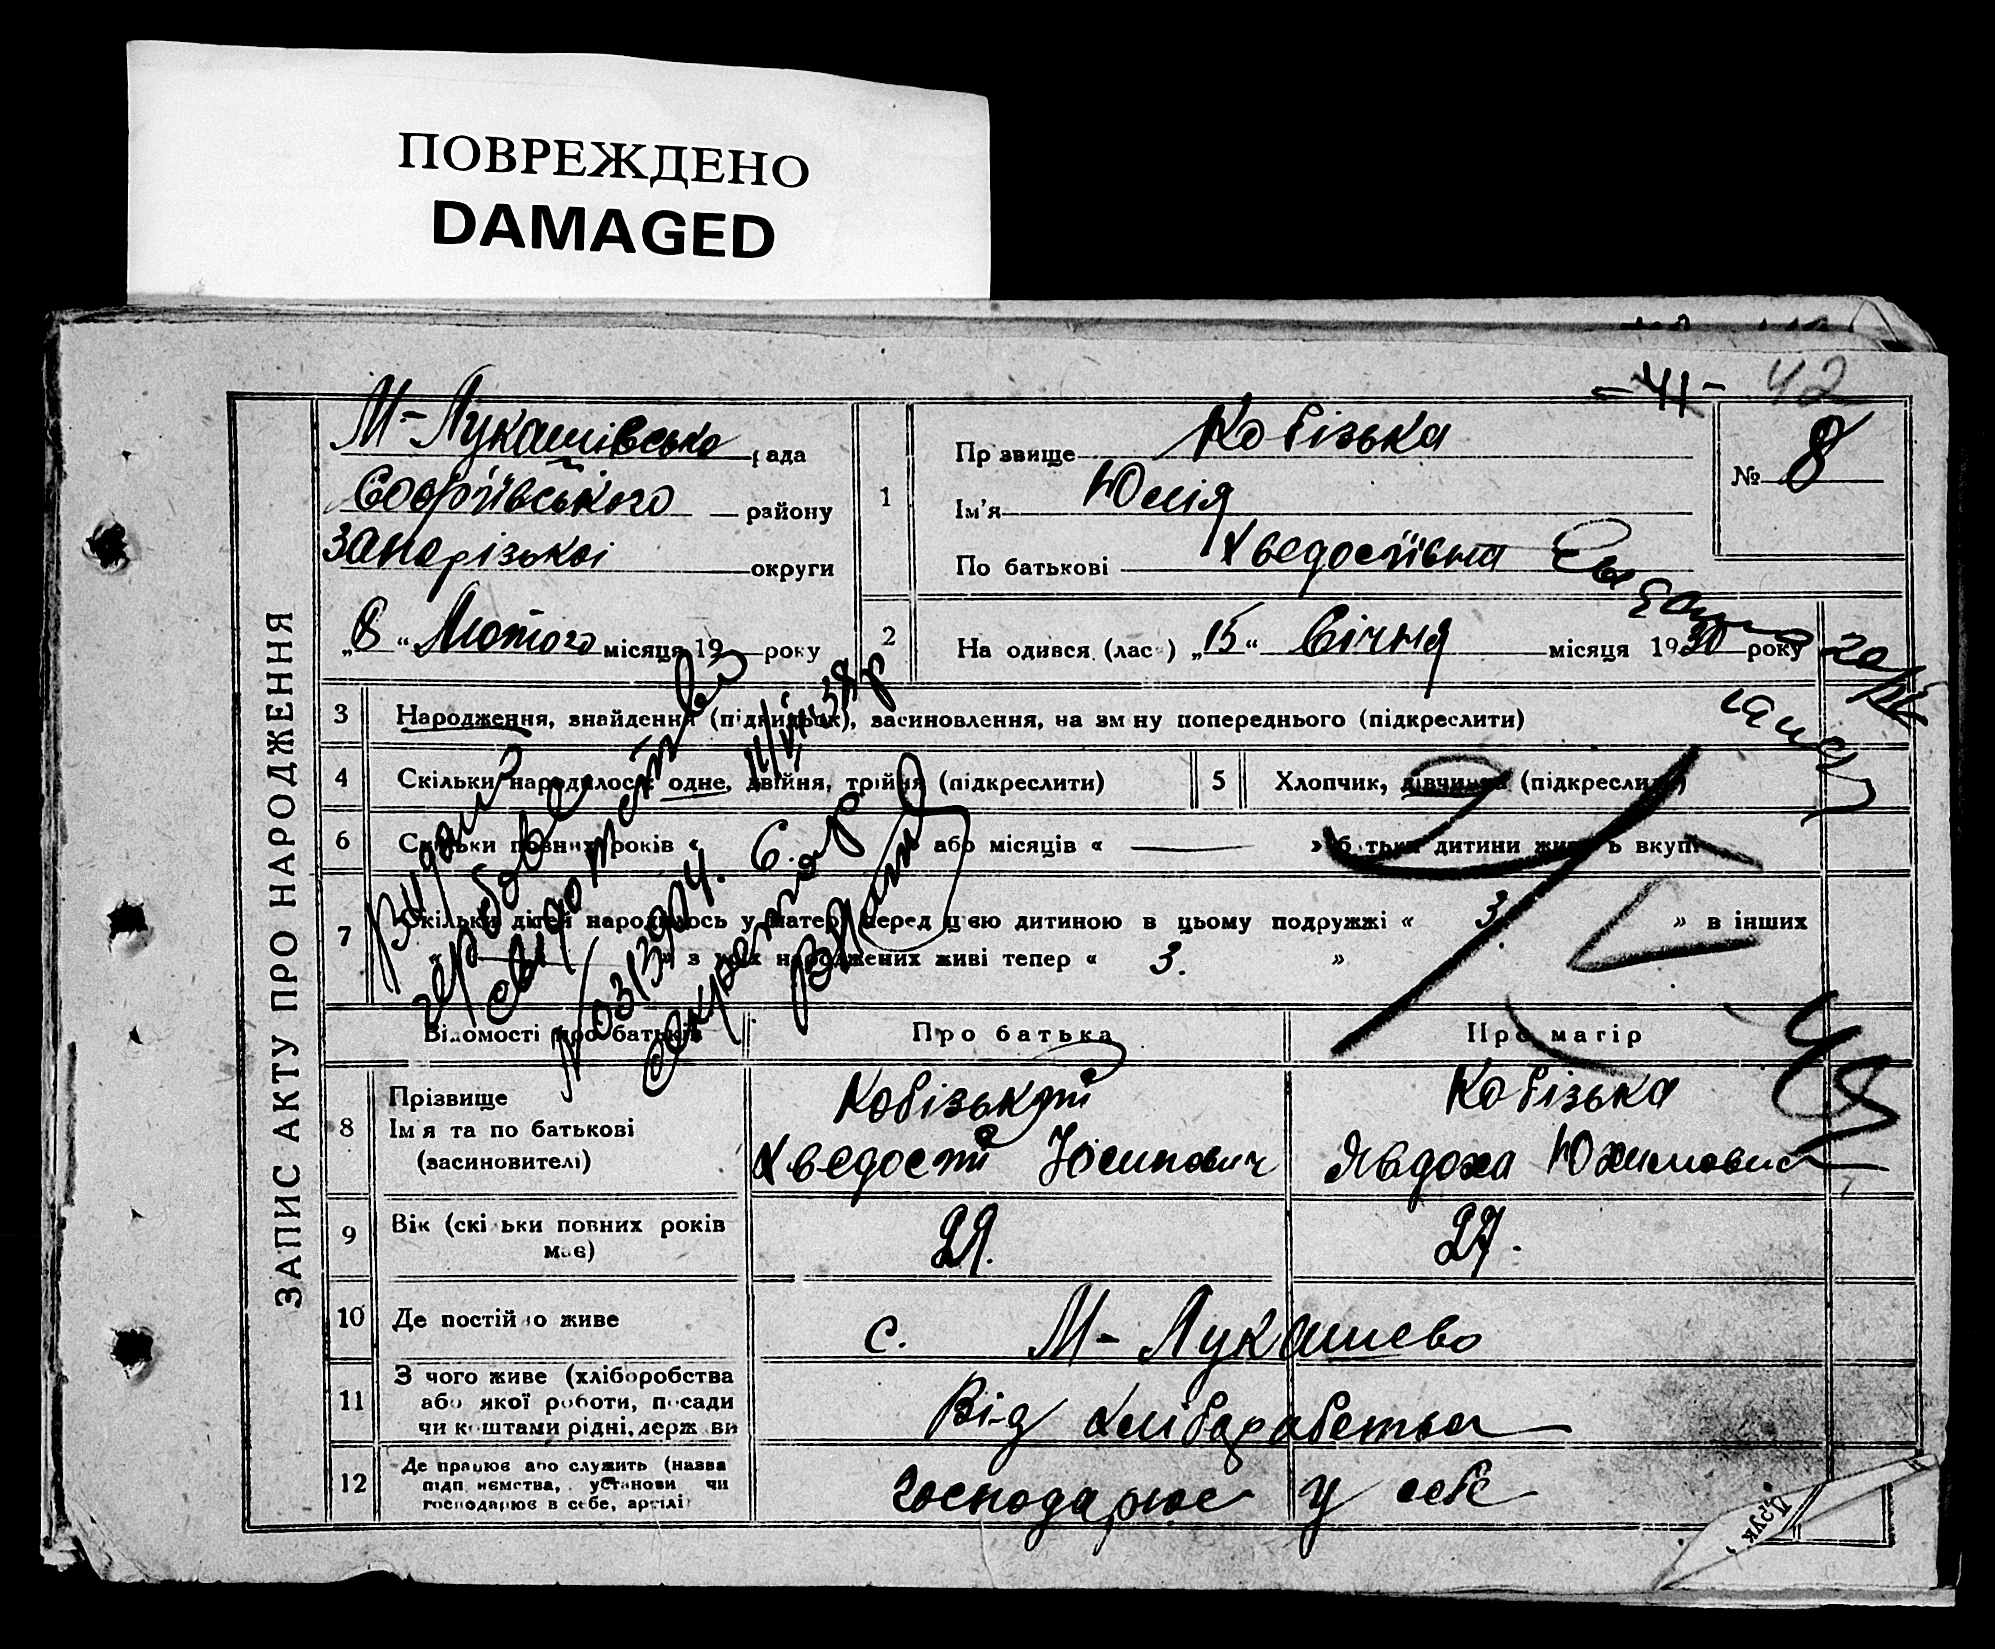 ПОВРЕЖДЕНО
DAMAGED
-41- 42
ЗАПИС АКТУ ПРО НАРОДЖЕННЯ
М-Лукашівська рада
Софіївського району
Запорізької округи
„8“ Лютого місяця 19 року
1
Пр звище Кобізька
Ім'я Юлія
По батькові Хведосіївна
№ 8
2
На одився (лас ) „15“ Січня місяця 1930 року
3 Народження, знайдення (підкидьок), засиновлення, на зм ну попереднього (підкреслити)
4 Скільки народилося: одне, двійня, трійня (підкреслити)
5 Хлопчик, дівчинка (підкреслити)
6 Скільки повних років « або місяців « — » б тьки дитини живуть вкупі
7 Скільки дітей народилось у матері перед цією дитиною в цьому подружжі « 3. » в інших
« — » з усіх народжених живі тепер « 3. »
Відомості про батьків
Про батька
Про матір
8 Прізвище
Ім я та по батькові
(засиновителі)
Кобізький
Хведосій Йосипович
Кобізька
Явдоха Юхимовна
9 Вік (скі ьки повних років
має)
29.
27.
10 Де постій о живе
с. М-Лукашево
11 З чого живе (хліборобства
або якої роботи, посади
чи коштами рідні, держ ви
Від хліборобства
12 Де працює або служить (назва
підп иємства, установи чи
господарює в себе, артілі)
господарює у себе